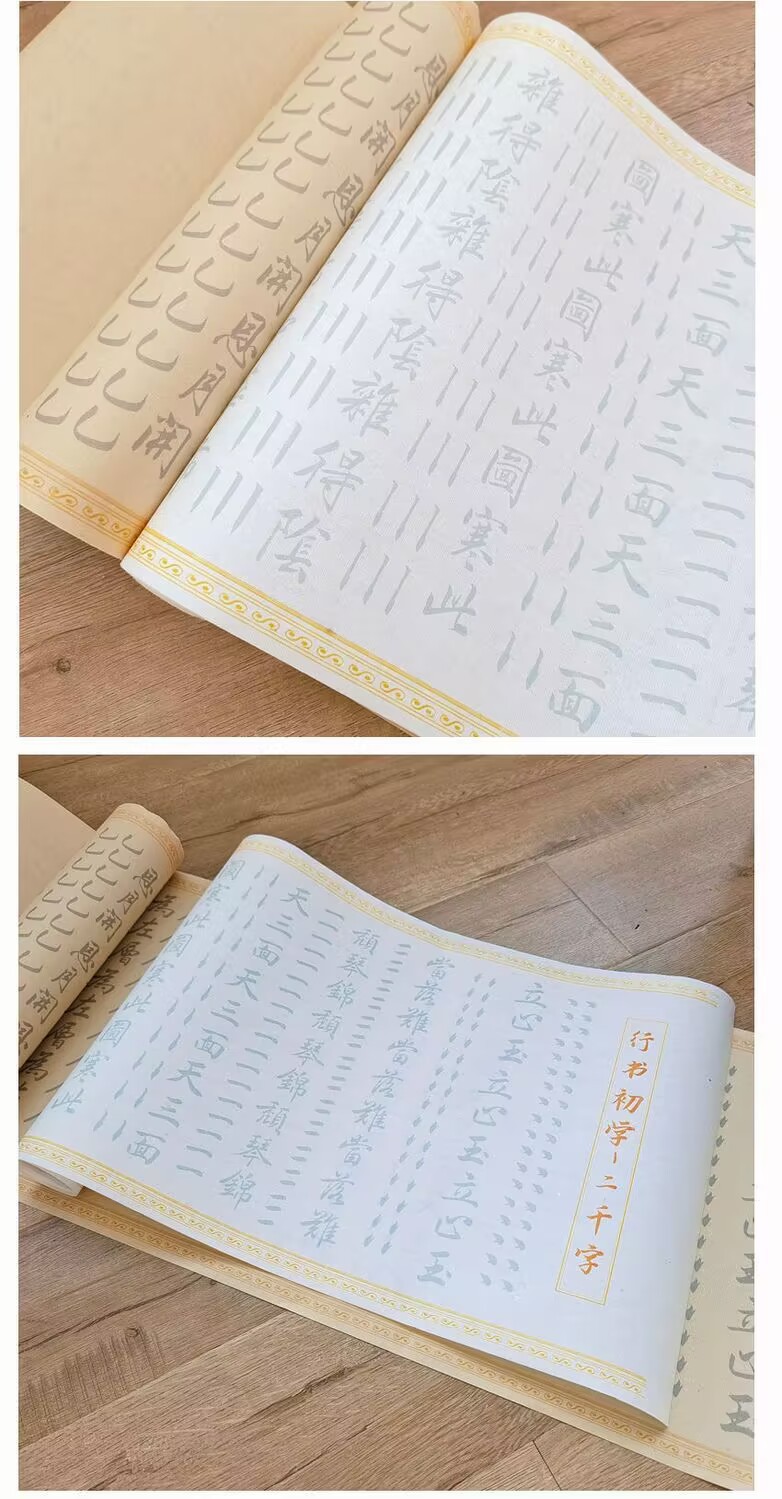 天三面天三面天三面
圖寒此圖寒此圖寒此
雜得陰雜得陰雜得陰
恩月開恩月開恩月開
行书初学一二千字
立心玉立心玉立心玉
當落難當落難當落難
琴錦琴錦琴錦
天三面天三面天三面
圖寒此圖寒此圖寒此
恩月開恩月開